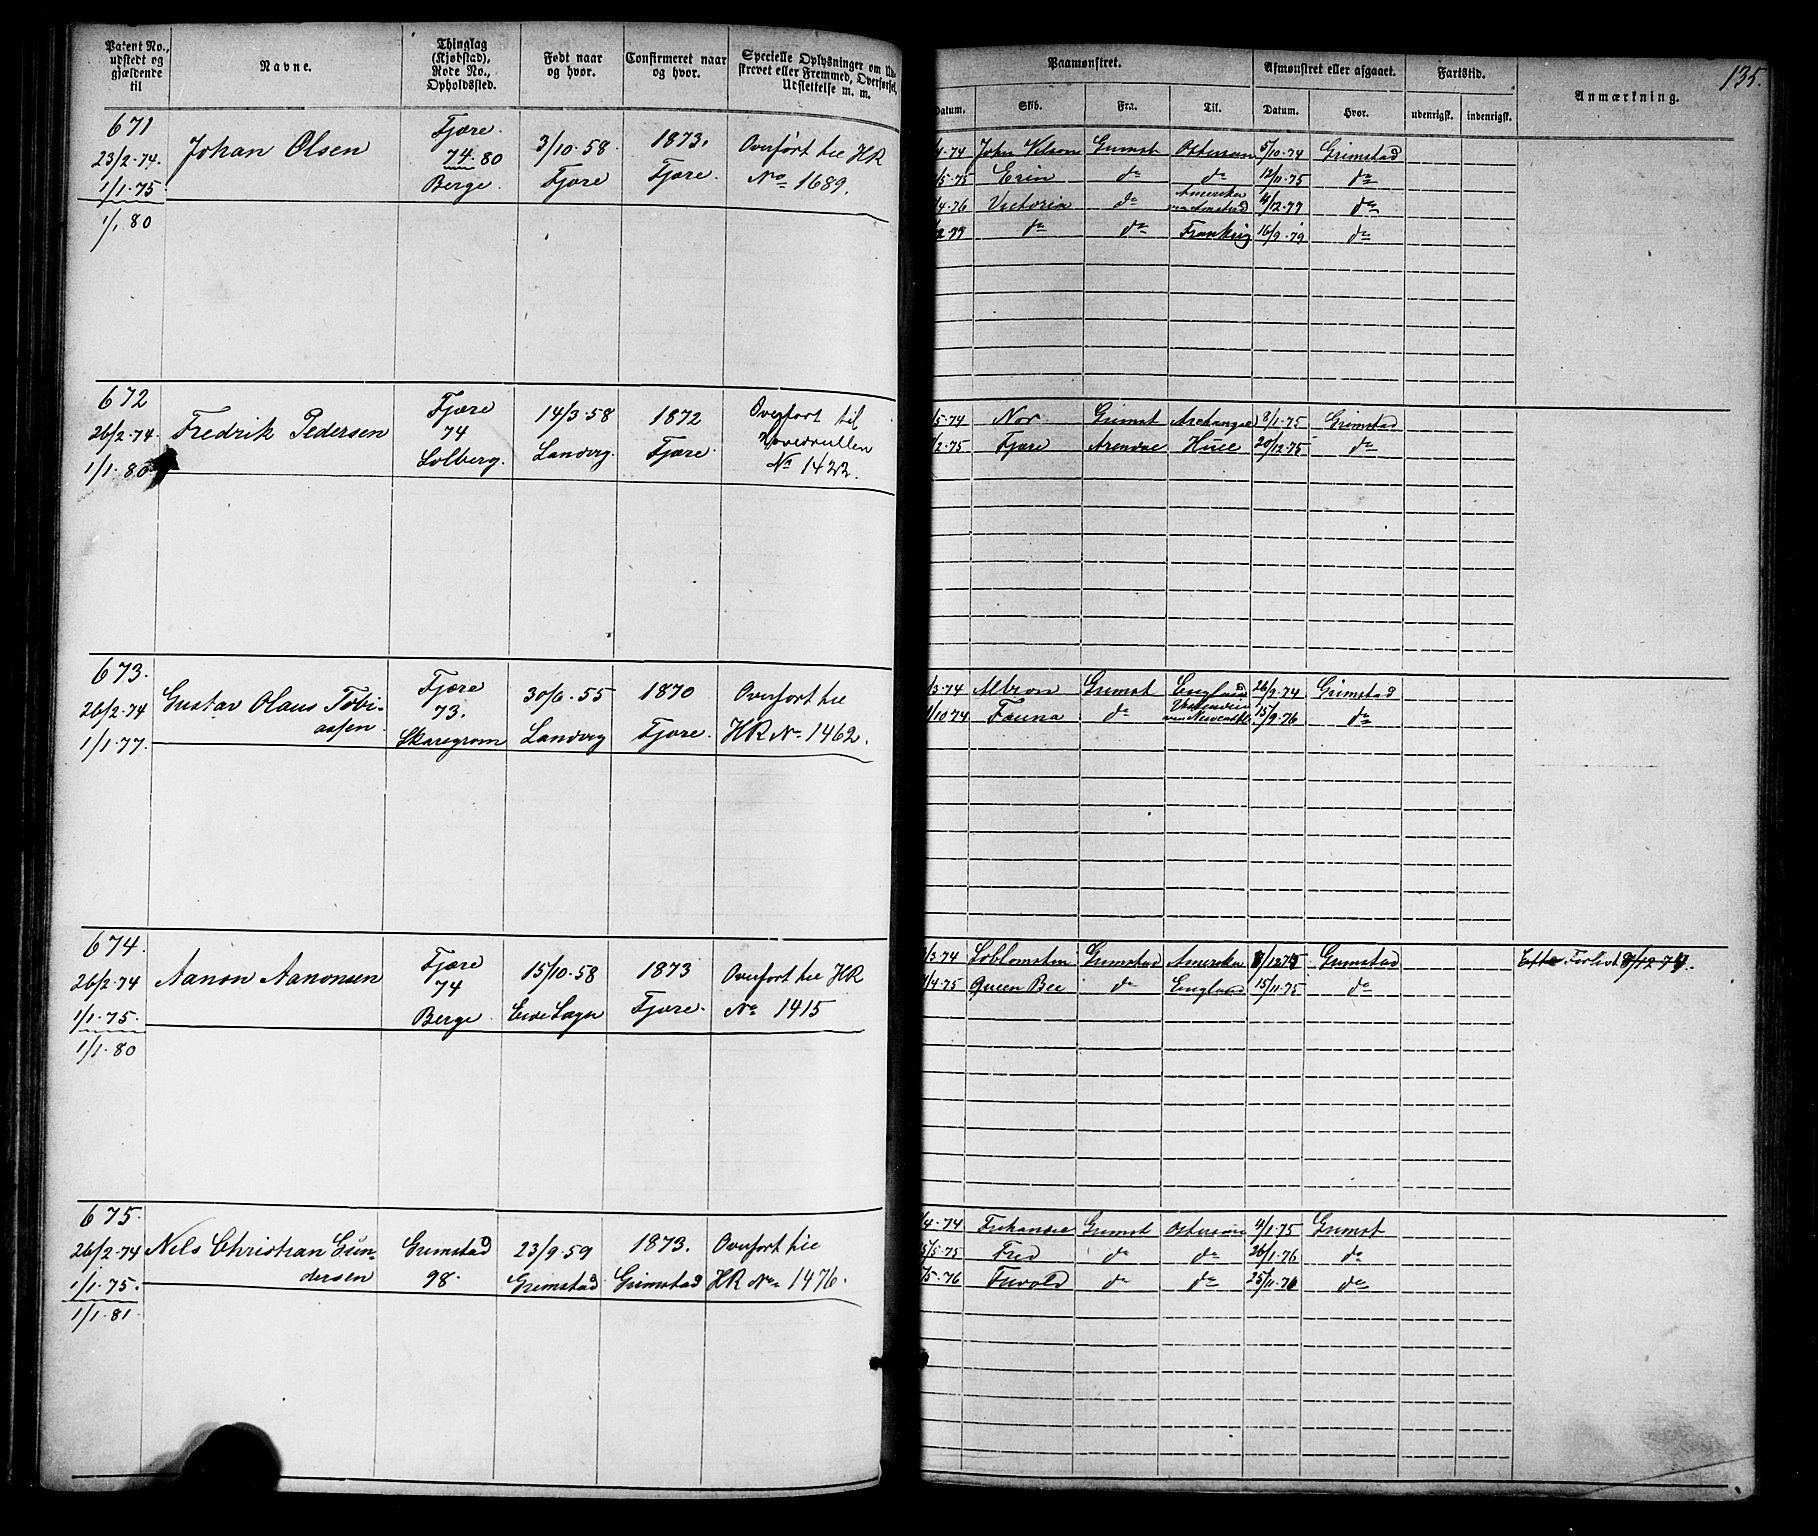 Patent No., udstedt og gjældende til
Navne.
Thinglag (Kjøbstad), Rode No., Opholdssted.
Født naar og hvor.
Confirmeret naar og hvor.
Specielle Oplysninger om Udskrevet eller Fremmed, Overførsel, Udslettelse m. m.
Paamønstret.
Afmønstret eller afgaaet.
Fartstid.
Anmærkning.
135.
Datum.
Skib.
Fra.
Til.
Datum.
Hvor.
udenrigsk.
indenrigsk.
671
23/2-74.
1/1-75
1/1 80
Johan Olsen
Fjære.
74.80
Berge.
3/10-58.
Fjære
1873.
Fjære.
Overført til HR
No 1689.
/4-74 Grimst 5/10-74 Grimstad
/5-75 Erin do do 12/11-75 do
/4-76 Victoria do Amerika 4/12-77 do
/2-77 do do 16/9-79 do
672
26/2-74.
1/1-80
Fredrik Pedersen
Fjære
74
Solberg.
14/3-58
Landvig.
1872
Fjære.
Overført til
Hovedrullen
No 1422.
/5-74 Nor Grimst Archangel 8/1-75 Grimstad
/2-75 Fjære Arendal Hull 20/12-75 do
673.
26/2-74
1/1-77.
Gustav Olaus Tobi-
assen.
Fjære
73.
30/6-55
Landvig
1870
Fjære.
Overført til
HR No 1462.
/3-74 Albion Grimst England 26/9-74 Grimstad
1/10 74 Fauna do 15/9-76 do
674.
26/2-74
1/1-75.
1/1-80
Aanon Aanonsen
Fjære
74
Berge.
15/10-58
1873
Fjære.
Overført til HR
No 1415
/3-74 Grimstad Amerika Grimstad Forlist
/4-75 Queen Bee do England 15/11-75 do
675.
26/2-74
1/1-75.
1/1-81
Nels Christian Gun-
dersen
Grimstad
98.
23/9-59
Grimstad
1873.
Grimstad
Overført til
HR No 1476.
/4-74 Grimst 9/1-75 Grimst
5/5-75 Fred do do 26/1-76 do
/5-76 do do 25/11-76 do